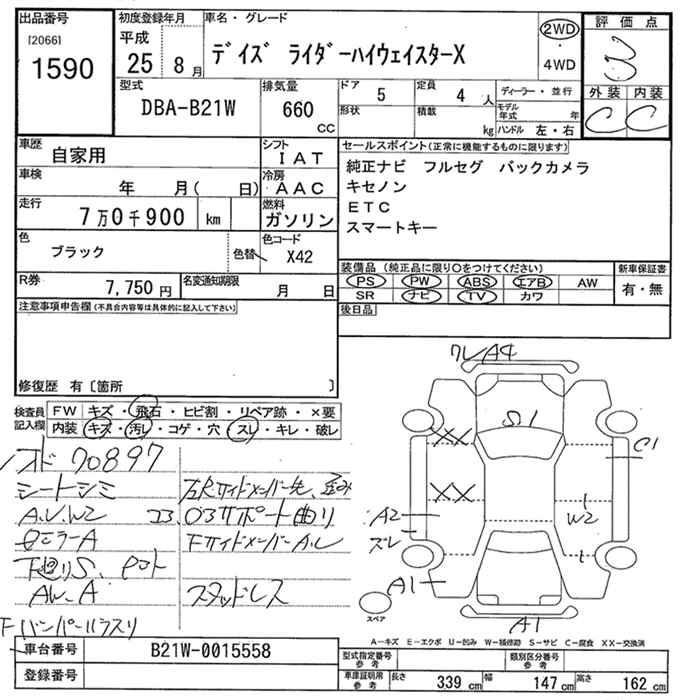 出品番号
[2066]
1590
初度登録年月
平成
25年 8月
車名・グレード
デイズ ライダーハイウェイスターX
2WD
・
4WD
評価点
3
外装 内装
C C
型式
DBA-B21W
排気量
660
cc
ドア 5
形状
定員 4 人
積載 kg
ディーラー・並行
モデル年式 年
ハンドル 左・右
車歴
自家用
シフト
IAT
車検
年 月( 日)
冷房
AAC
走行
7万0千900 km
燃料
ガソリン
色
ブラック
色替
色コード
X42
R券
7,750円
名変通知期限
月 日
セールスポイント(正常に機能するものに限ります)
純正ナビ フルセグ バックカメラ
キセノン
ETC
スマートキー
装備品(純正品に限り○をつけてください)
PS PW ABS エアB AW
SR ナビ TV カワ
新車保証書
有・無
後日品
注意事項申告欄(不具合内容等は具体的に記入して下さい)
修復歴 有〔箇所 〕
検査員記入欄
FW キズ・飛石・ヒビ割・リペア跡・×要
内装 キズ・汚レ・コゲ・穴・スレ・キレ・破レ
70897
シートシミ
A.U.W2
コ3.
サポート曲り
FサイドメンバーA.し
下廻りS、
AW-A
スタッドレス
Fバンパー
ワレA4
S1
XX
XX
C1
A2
ズレ
W2
A1
A1
スペア
A-キズ E-エクボ U-凹み W-補修跡 S-サビ C-腐食 XX-交換済
車台番号
B21W-0015558
登録番号
型式指定番号
参考
類別区分番号
参考
車庫証明用
参考
長さ 339 cm 幅 147 cm 高さ 162 cm